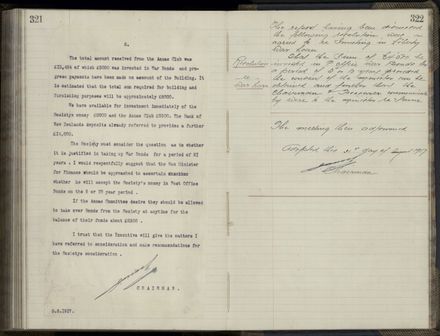 321
2.
The total amount received from the Annex Club was
£15,494 of which £5000 was invested in War Bonds and pro-
gress payments have been made on account of the Building. It
is estimated that the total sum required for building and
furnishing purposes will be approximately £8000.
We have available for investment immediately of the
Society's money £2000 and the Annex Club £2500. The Bank of
New Zealand deposits already referred to provides a further
The Society must consider the question as to whether
it is justified in taking up War Bonds for a period of
years. I would respectfully suggest that the Hon Minister
for Finance should be approached to ascertain whether
whether he will accept the Society's money in Post Office
Bonds on the 5 or 10 year period.
If the Annex Committee desire they should be allowed
to take over Bonds from the Society at anytime for the
balance of their funds about £2500.
I trust that the Executive will give the matters I
have referred to consideration and make recommendations for
the Society's consideration.
CHAIRMAN.
1917.
322
The report having been discussed
the following resolution was
agreed to re Investing in
War Loan
Resolution
re
War Loan
That the Sum of
invested in P. Office War Bonds for
a period of 5 or 10 years provided
the consent of the
obtained and further that the
Chairman
The meeting then adjourned
day of August 1917
Chairman